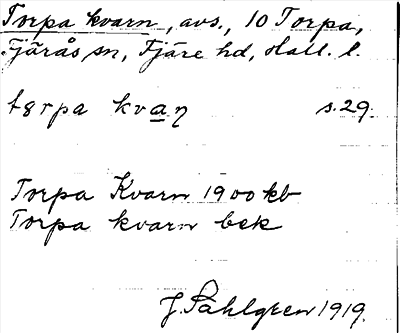 Torpa kvarn, avs., 10 Torpa,
Fjärås sn, Fjäre hd, Hall. l.
tɵrpa kvaɳ s. 29.
Torpa Kvarn 1900 kb
Torpa kvarn bek
J. Sahlgren 1919.